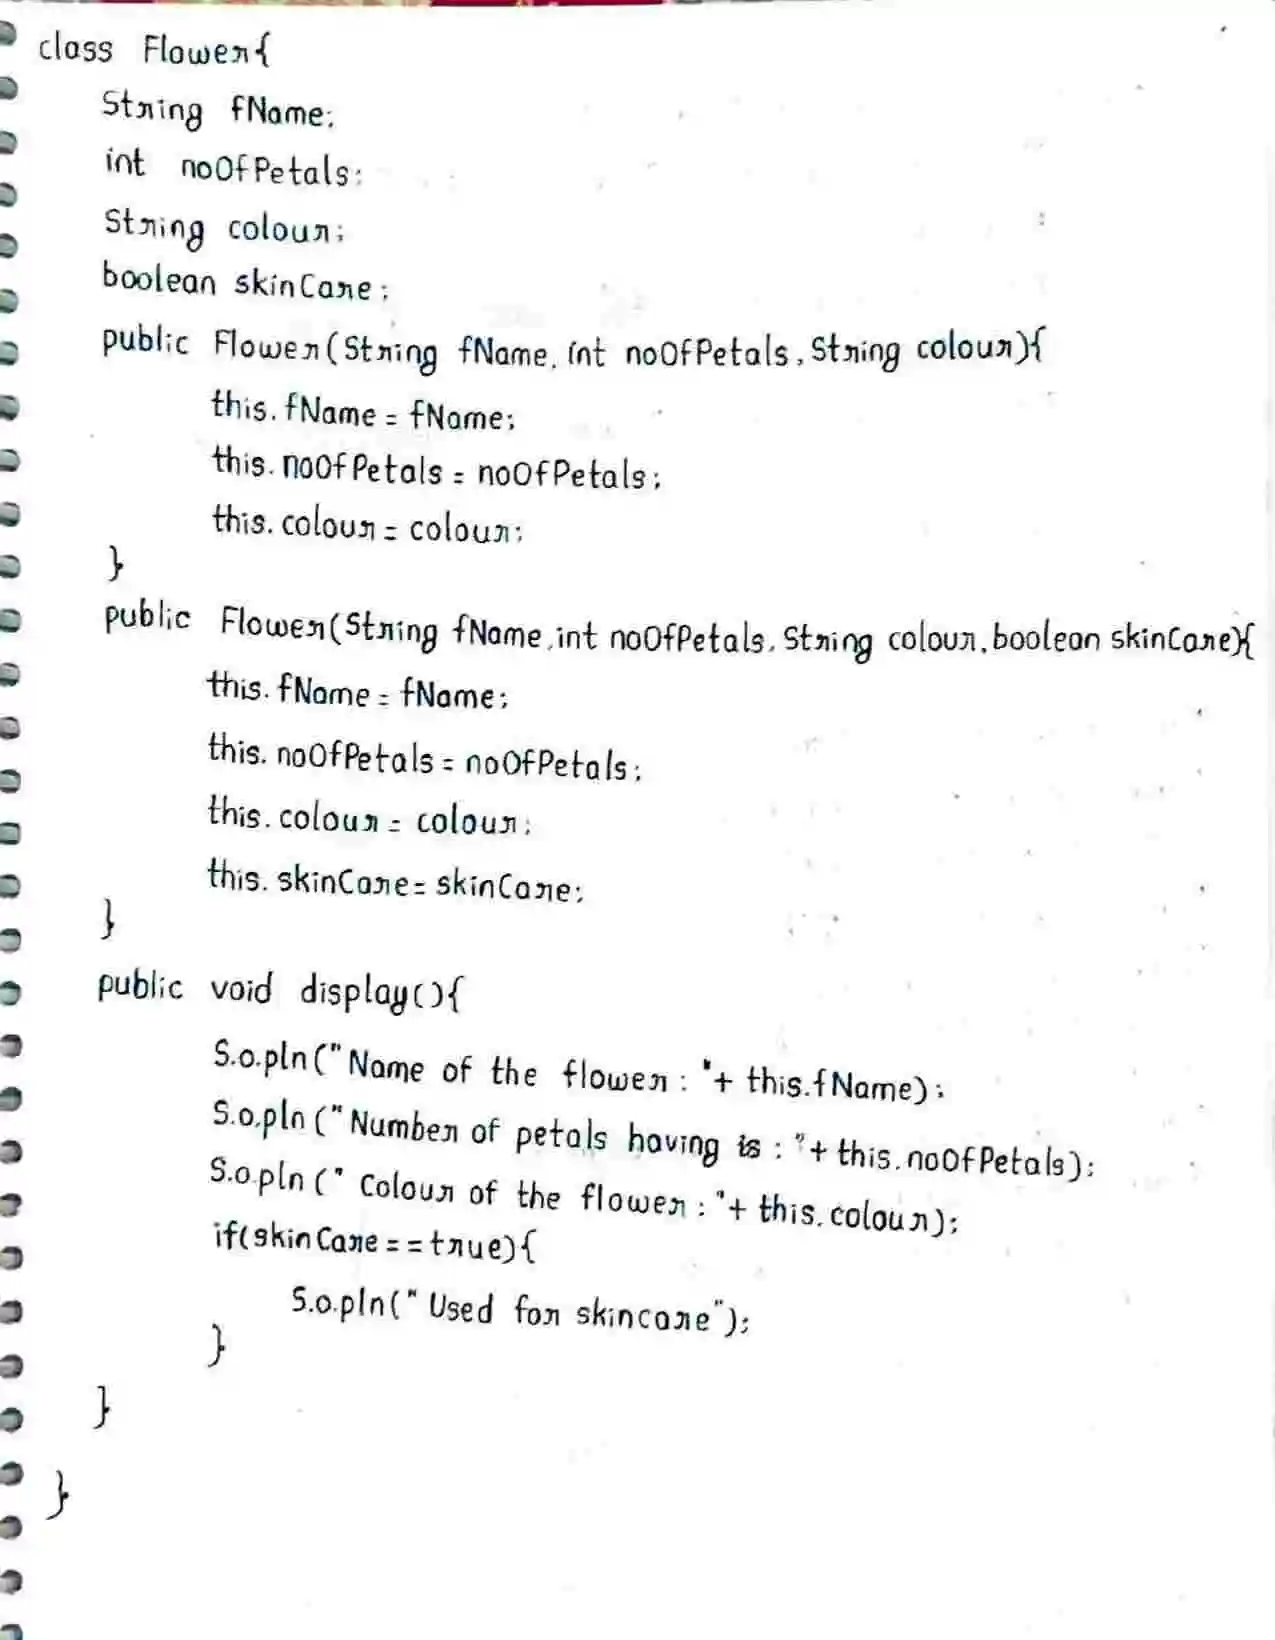 class Flower{
String fName;
int noOfPetals;
String colour;
boolean skinCare;
public Flower(String fName, int noOfPetals, String colour){
this.fName = fName;
this.noOfPetals = noOfPetals;
this.colour = colour;
}
public Flower(String fName, int noOfPetals, String colour, boolean skinCare){
this.fName = fName;
this.noOfPetals = noOfPetals;
this.colour = colour;
this.skinCare = skinCare;
}
public void display(){
S.o.pln("Name of the flower : "+ this.fName);
S.o.pln("Number of petals having is : "+ this.noOfPetals);
S.o.pln(" Colour of the flower : "+ this.colour);
if(skinCare==true){
S.o.pln(" Used for skincare");
}
}
}